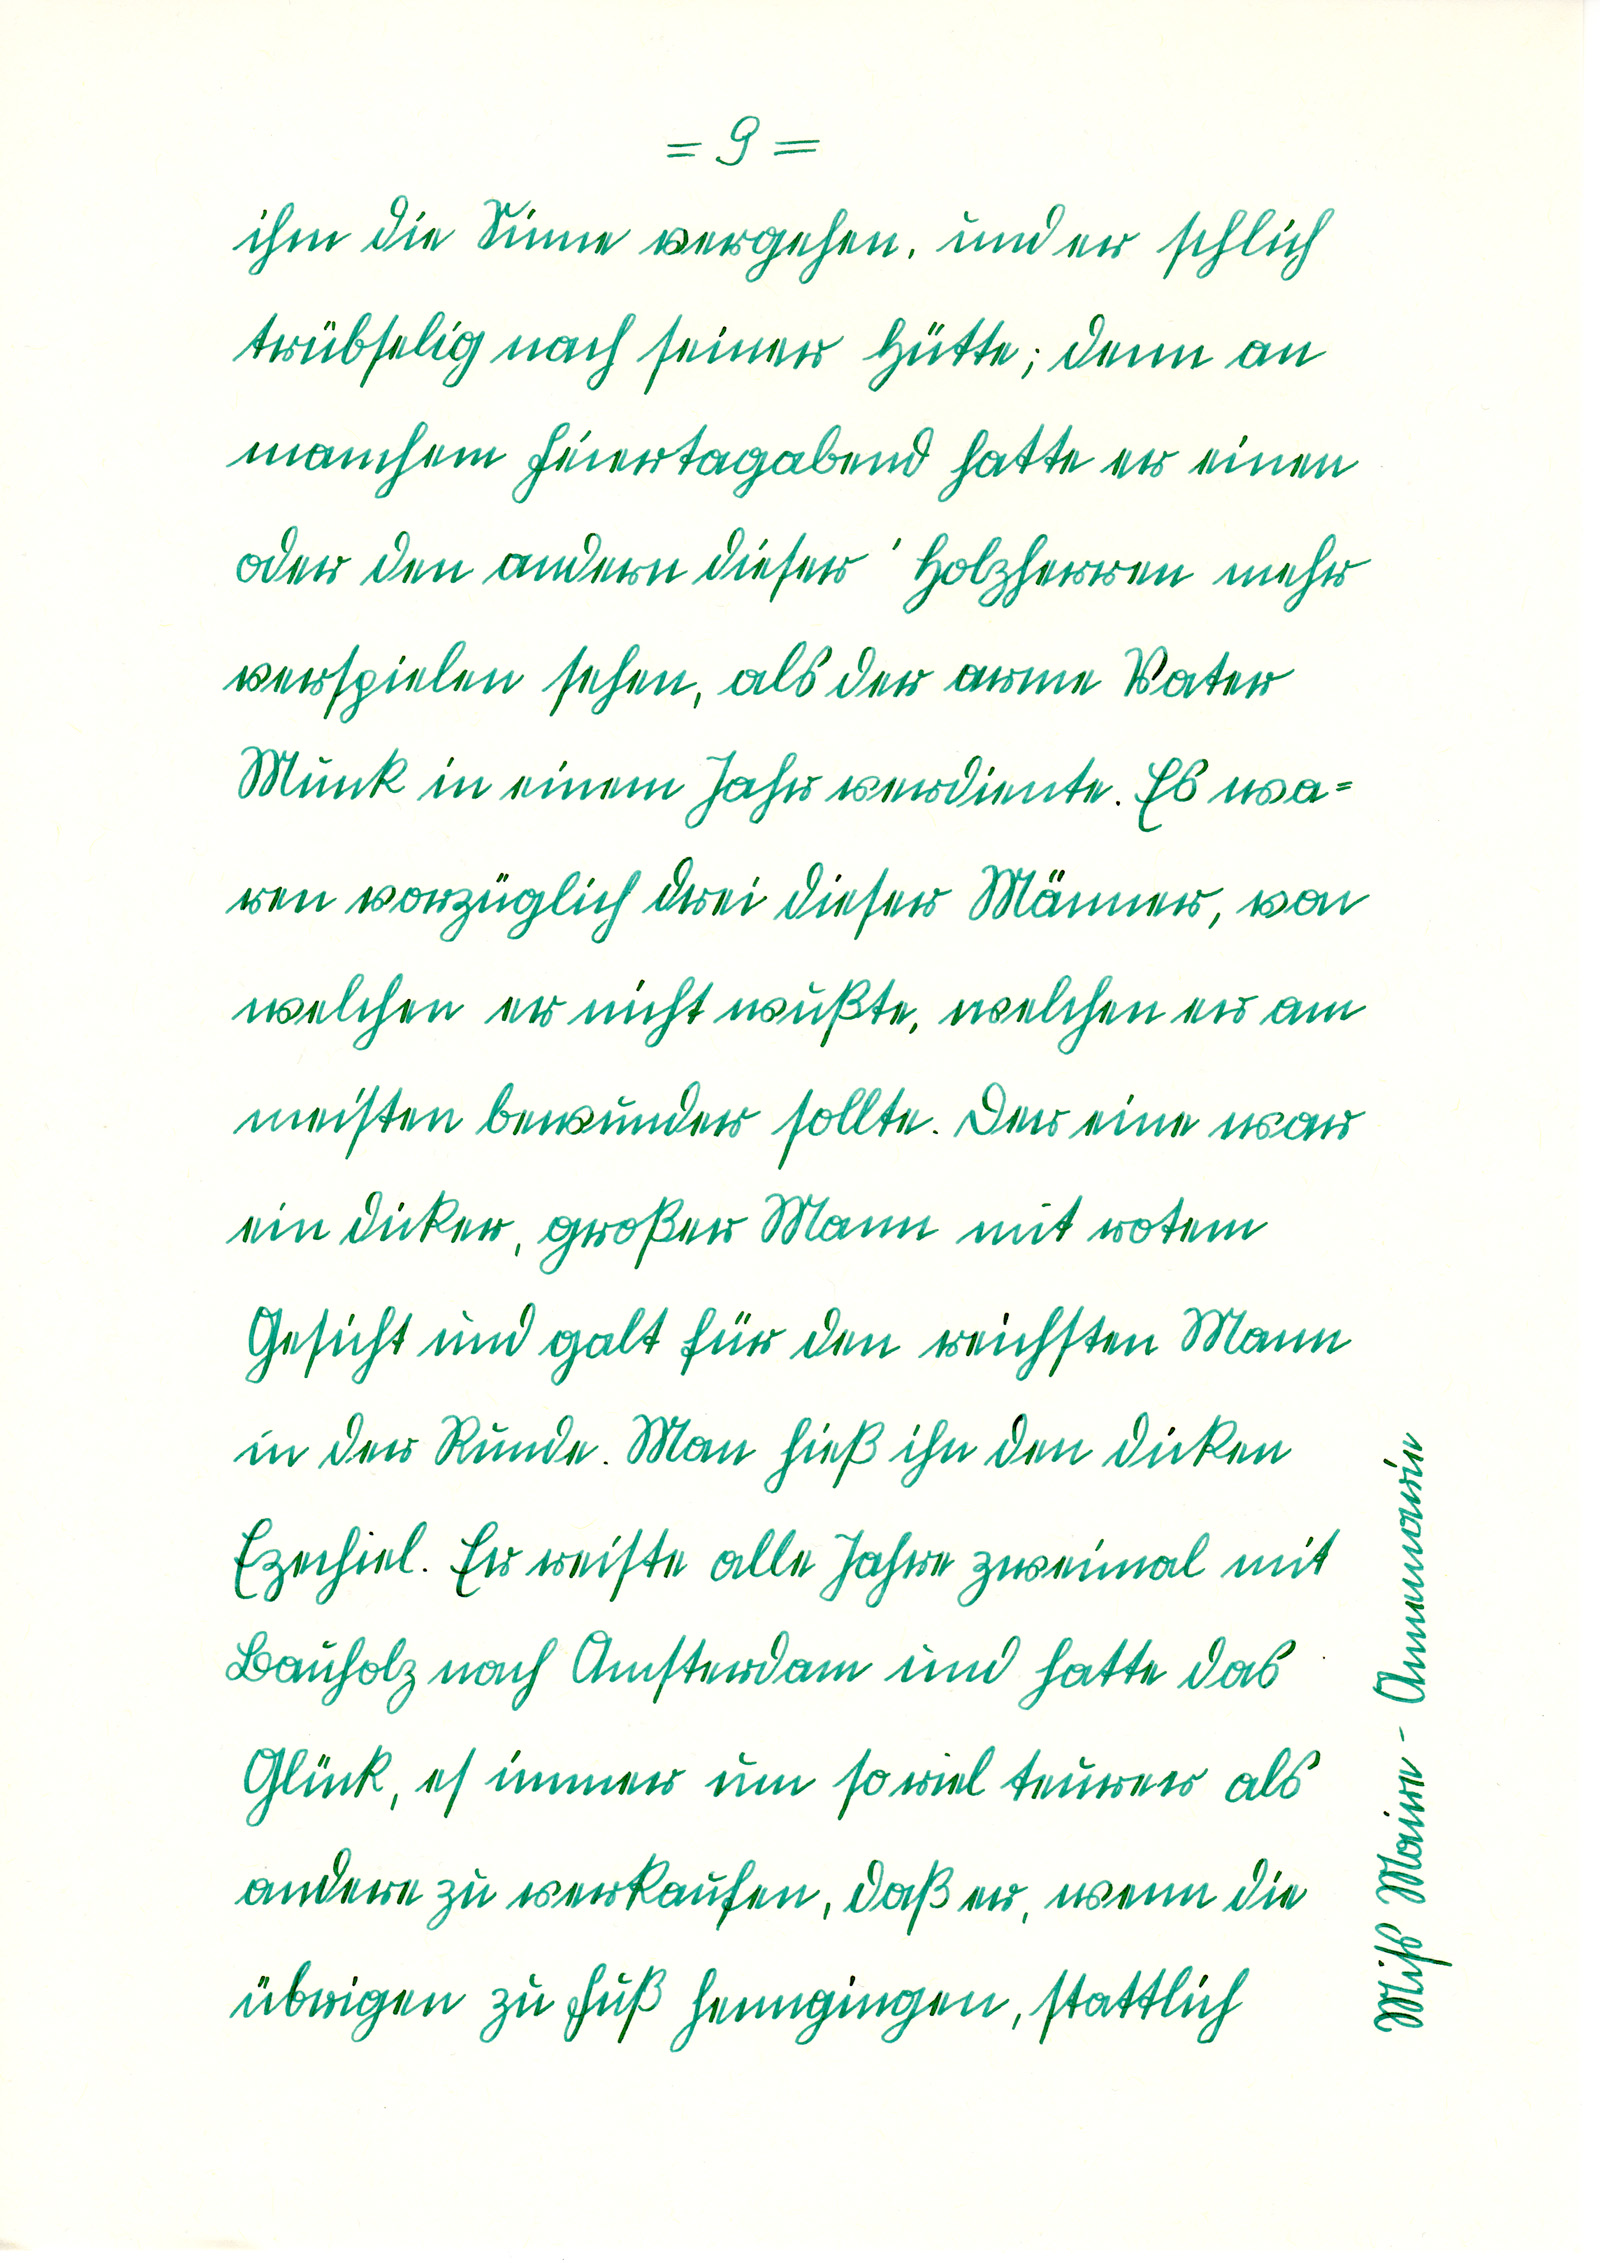 = 9 =
ihm die Sinne vergehen, und er schlich
trübselig nach seiner Hütte; denn an
manchem Feiertagabend hatte er einen
oder den andern dieser Holzherren mehr
verspielen sehen, als der arme Vater
Munk in einem Jahr verdiente. Es wa=
ren vorzüglich drei dieser Männer, von
welchen er nicht wußte, welchen er am
meisten bewunder sollte. Der eine war
ein dicker, großer Mann mit rotem
Gesicht und galt für den reichsten Mann
in der Runde. Man hieß ihn den dicken
Ezechiel. Er reiste alle Jahre zweimal mit
Bauholz nach Amsterdam und hatte das
Glück, es immer um so viel teurer als
andere zu verkaufen, daß er, wenn die
übrigen zu Fuß heimgingen, stattlich
Annemarie